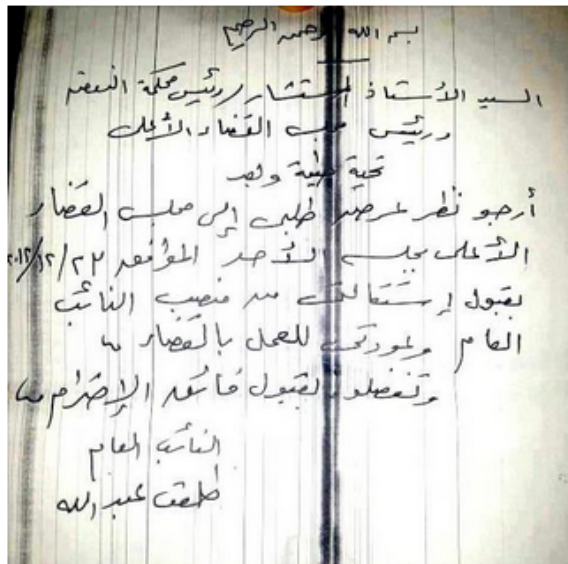 بسم الله الرحمن الرحيم
السيد الأستاذ المستشار / رئيس محكمة النقض
ورئيس مجلس القضاء الأعلى
تحية طيبة وبعد
أرجو نظر عرض طلبى إلى مجلس القضاء
الأعلى بجلسة الأحد الموافق ٢٣/١٢/٢٠١٢
بقبول إستقالتى من منصب النائب
العام وعودتى للعمل بالقضاء
وتفضلوا بقبول فائق الإحترام
النائب العام
طلعت عبد الله